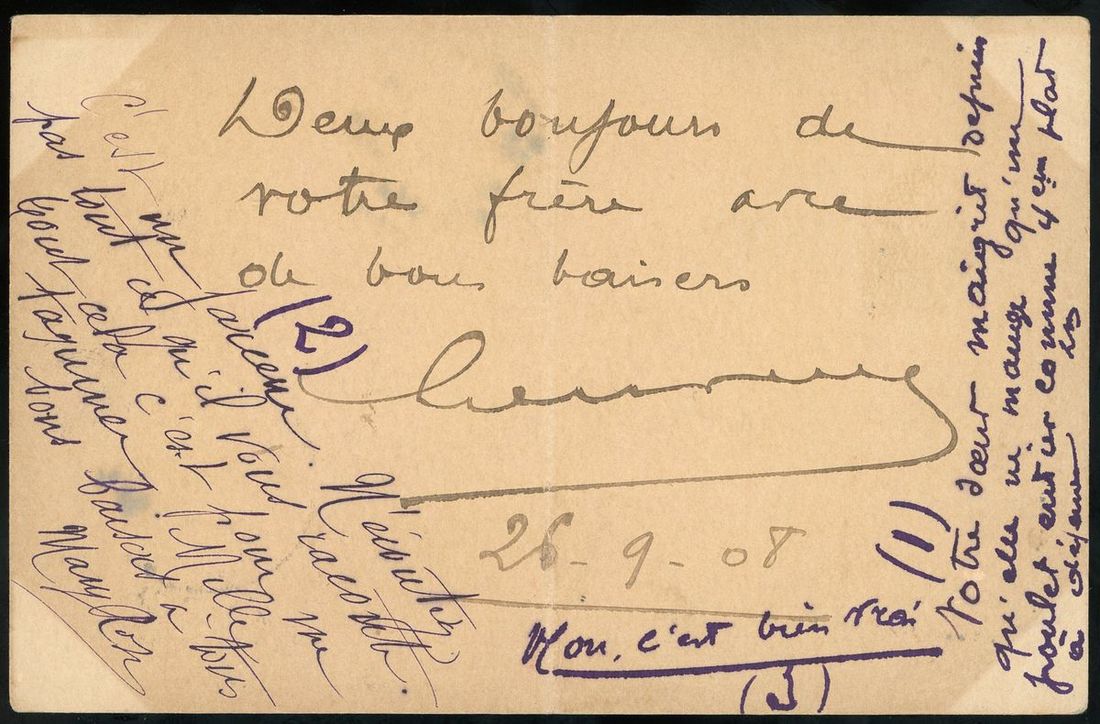 Deux bonjours de
votre frère avec
de bons baisers
26-9-08
(1)
Votre sœur maigrit depuis
qu'elle ne mange qu'un
poulet entier comme 4em plat
à déjeuner
(2)
C'est un farceur. N'écoutez
pas tout ce qu'il vous raconte.
tout cela c'est pour me
taquiner. Mille
bons baisers à tous
Non, c'est bien vrai